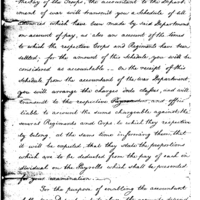 the Pay of the Troops, the accountant to the depart-
ment of war will transmit you a schedule of all
advances which have been made by said Department
on account of pay, as also an account of the sums
to which the respective Corps and Regiments have been
settled; for the amount of this schedule, you will be
considered as accountable. On the receipt of this
Schedule from the accountant of the war Department
you will arrange the charges into states, and will
transmit to the respective Paymasters, and offi-
cers liable to account the sums chargeable against the
several Regiments and Corps to which they respective-
ly belong, at the same time informing them that
it will be expected that they state the proportions
which are to be deducted from the pay of each in-
dividual on the Payrolls which shall be presented
for your examination.
For the purpose of enabling the accountant